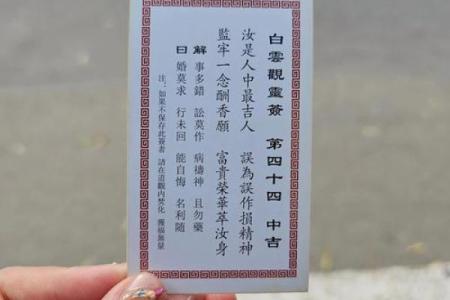 白雲觀靈簽 第四十四 中吉
汝是人中最吉人 誤為誤作損精神
監牢一念酬香願 富貴榮華萃汝身
解曰
事多錯 訟莫作 病禱神 且勿藥
婚莫求 行未回 能自悔 名利隨
注：如果不保存此簽者 請在道觀內焚化 獲福無量